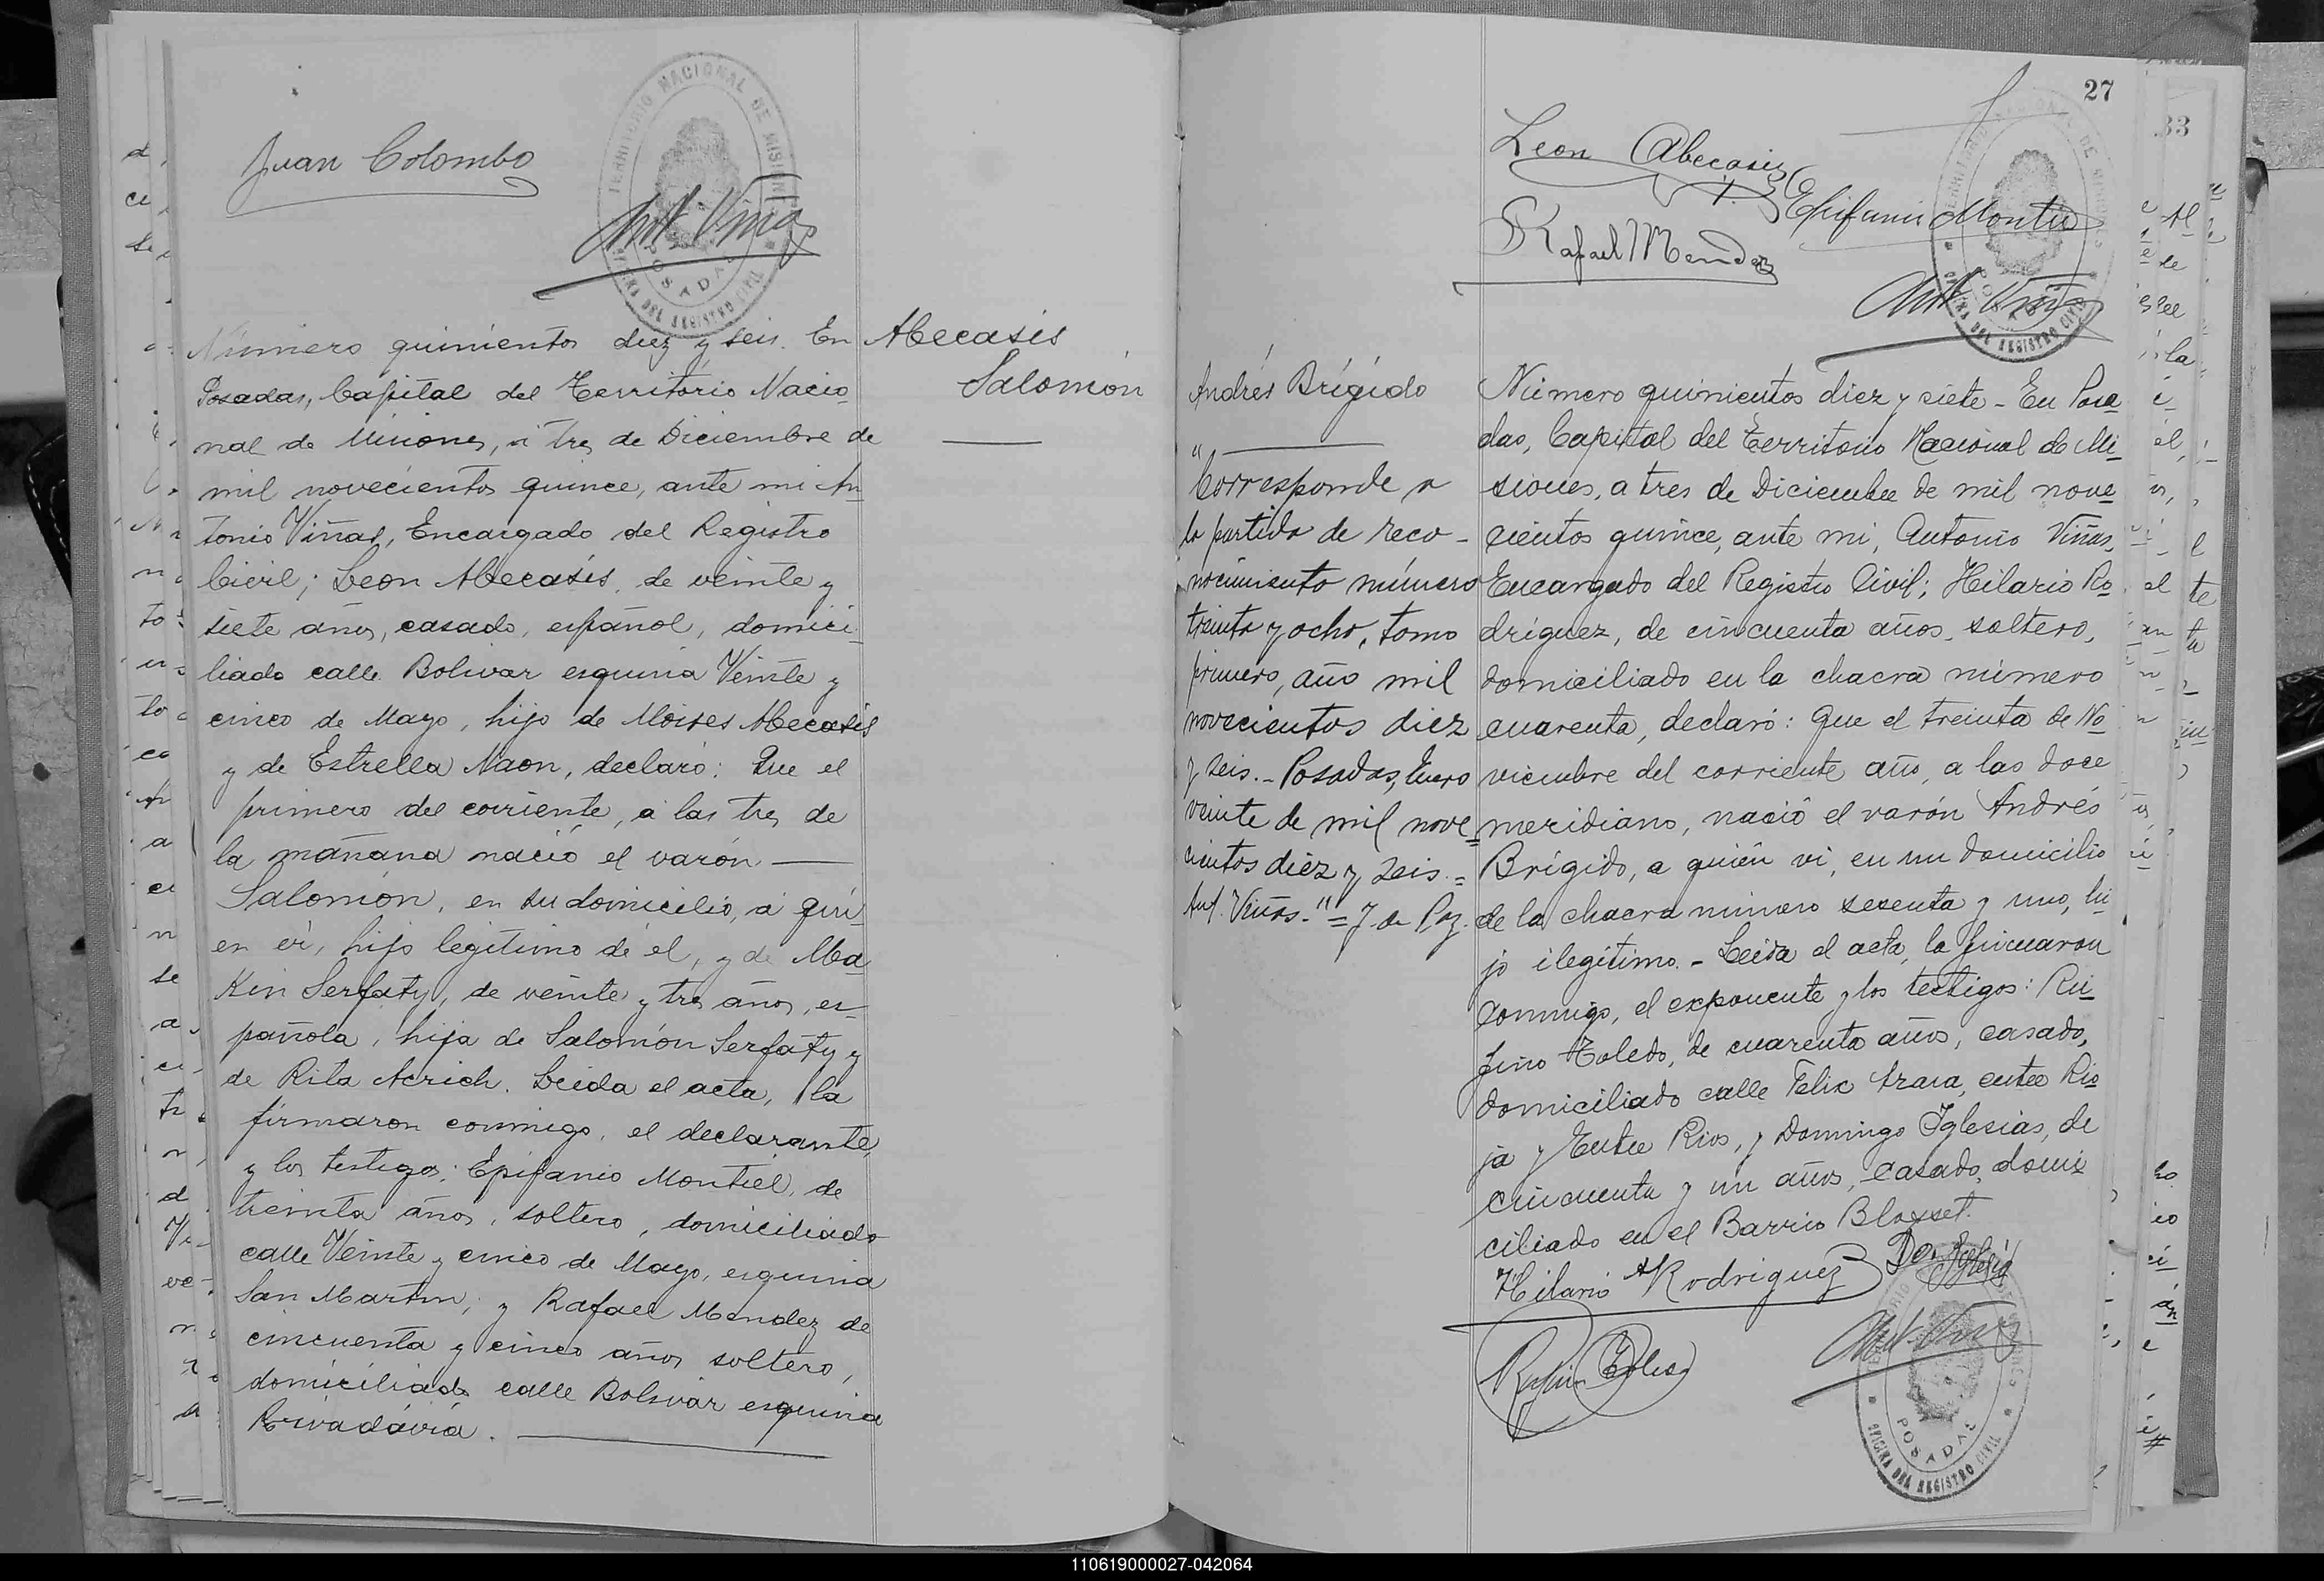 Juan Colombo
TERRITORIO NACIONAL DE MISIONES
POSADAS
OFICINA DEL REGISTRO CIVIL
Ant. Viñas
Abecasis
Salomón
Número quinientos diez y seis. En
Posadas, Capital del Territorio Nacio_
nal de Misiones, á tres de Diciembre de
mil novecientos quince, ante mi An_
tonio Viñas, Encargado del Registro
Civil; Leon Abecasis, de veinte y
siete años, casado, español, domici_
liado calle Bolivar esquina Veinte y
cinco de Mayo, hijo de Moises Abecasis
y de Estrella Naon, declaró: Que el
primero del corriente, á las tres de
la mañana nació el varón —
Salomón, en su domicilio, á qui_
en ví, hijo legítimo de él, y de Ma_
Kin Serfaty, de veinte y tres años, es_
pañola, hija de Salomón Serfaty y
de Rita Acrich. Leida el acta, la
firmaron conmigo, el declarante
y los testigos: Epifanio Montiel, de
treinta años, soltero, domiciliado
calle Veinte y cinco de Mayo, esquina
San Martin; y Rafael Mendez de
cincuenta y cinco años soltero,
domiciliado calle Bolivar esquina
Rivadávia.
27
33
Leon Abecasis
Epifanio Montiel
Rafael Mendez
Ant. Viñas
POSADAS
OFICINA DEL REGISTRO CIVIL
Andrés Brígido
"
Corresponde a
la partida de reco-
nocimiento número
treinta y ocho, tomo
primero, año mil
novecientos diez
y seis.- Posadas, Enero
veinte de mil nove=
cientos diez y seis.=
Ant. Viñas-"= J. de Paz.
Número quinientos diez y siete - En Posa_
das, Capital del Territorio Nacional de Mi_
siones, a tres de Diciembre de mil nove_
cientos quince, ante mi, Antonio Viñas,
Encargado del Registro Civil; Hilario Ro_
dríguez, de cincuenta años, soltero,
domiciliado en la chacra número
cuarenta, declaró: Que el treinta de No_
viembre del corriente año, a las doce
meridiano, nació el varón Andrés
Brígido, a quién vi, en un domicilio
de la chacra número sesenta y uno, hi_
jo ilegítimo.- Leida el acta, la firmaron
conmigo, el exponente y los testigos: Ru_
fino Toledo, de cuarenta años, casado,
domiciliado calle Felix Azara, entre Rio
ja y Entre Rios, y Domingo Iglesias, de
cincuenta y un años, casado, domi
ciliado en el Barrio Blosset.
Hilario Rodriguez
Do. Iglesias
Rufino Toledo
Ant. Viñas
POSADAS
OFICINA DEL REGISTRO CIVIL
110619000027-042064